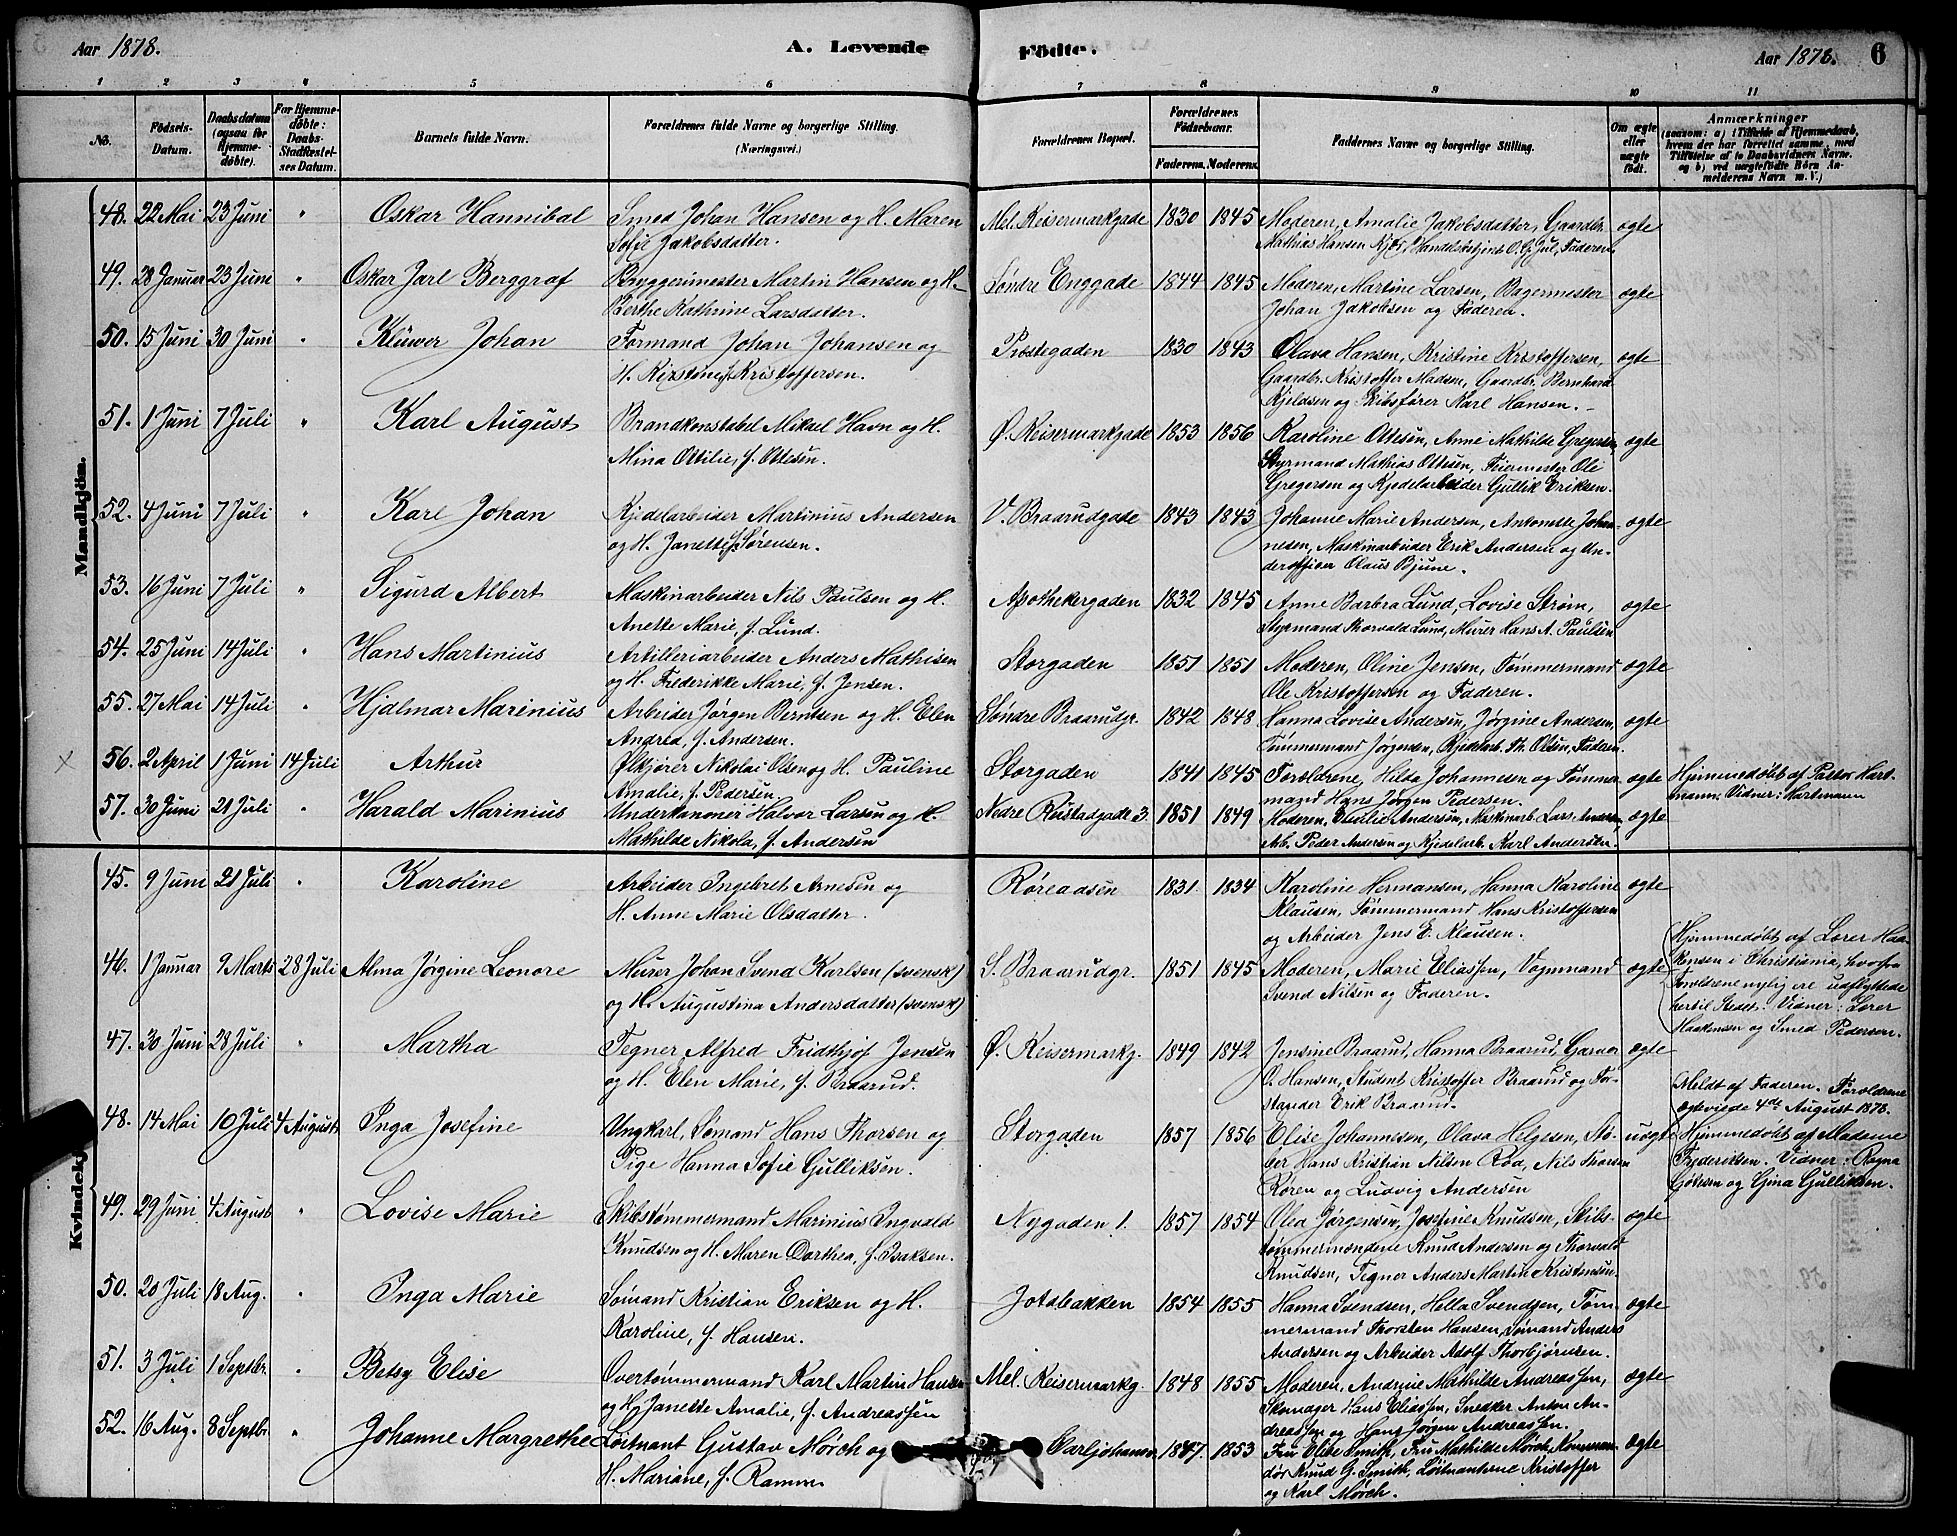 Aar 1878. A. Levende Födte. Aar 1878. 6
1 2 3 4 5 6 7 8 9 10 11
No. Födsels-Datum. Daabsdatum (ogsaa for Hjemme-døbte). For Hjemme-døbte: Daabs-Stadfæstel-ses Datum. Barnets fulde Navn. Forældrenes fulde Navne og borgerlige Stilling. (Næringsvei.) Forældrenes Bopæl. Forældrenes Födselsaar. Faderens. Moderens. Faddernes Navne og borgerlige Stilling. Om ægte eller uægte födt. Anmærkninger (saasom: a) i Tilfælde af Hjemmedaab, hvem der har forrettet samme, med Tilføielse af to Daabsvidners Navne. og b) ved uægtefödte Börn An-melderens Navn m. V.)
Mandkjön.
48. 22 Mai 23 Juni " Oskar Hannibal Smed Johan Hansen og H. Maren Mel. Keisermarkgade 1830 1845 Moderen, Amalie Jakobsdatter, Gaardbr. ægte
Sofie Jakobsdatter. Mathias Hansen Kjær, Handelsbetjent O. G. Jul, Faderen
49. 28 Januar 23 Juni " Oskar Jarl Berggraf Bryggerimester Martin Hansen og H. Søndre Enggade 1844 1845 Moderen, Martine Larsen, Bagermester ægte
Berthe Kathrine Larsdatter. Johan Jakobsen og Faderen.
50. 15 Juni 30 Juni " Klüwer Johan Formand Johan Johansen og Præstegaden 1830 1843 Olava Hansen, Kristine Kristoffersen, ægte
H. Kirstine, f. Kristoffersen. Gaardbr. Kristoffer Madsen, Gaardbr. Bernhard
Kjeldsen og Skibsfører Karl Hansen.
51. 1 Juni 7 Juli " Karl August Brandkonstabel Mikael Havn og H. Ø. Keisermarkgade 1853 1856 Karoline Ottesen, Anne Mathilde Gregersen, ægte
Mina Ottilie, f. Ottesen. Styrmand Mathias Ottesen, Feiermester Ole
Gregersen og Kjedelarbeider Gullik Eriksen.
52. 4 Juni 7 Juli " Karl Johan Kjedelarbeider Martinius Andersen V. Braarudgade 1843 1843 Johanne Marie Andersen, Antonette Johan- ægte
og H. Janette, f. Sørensen. nesen, Maskinarbeider Erik Andersen og Un-
derofficer Olaus Bjune.
53. 16 Juni 7 Juli " Sigurd Albert Maskinarbeider Nils Paulsen og H. Apothekergaden 1832 1845 Anne Barbra Lund, Lovise Strøm, ægte
Anette Marie, f. Lund. Styrmand Thorvald Lund, Murer Hans A. Paulsen
54. 25 Juni 14 Juli " Hans Martinius Artilleriarbeider Anders Mathisen Storgaden 1851 1851 Moderen, Oline Jensen, Tømmermand ægte
og H. Frederikke Marie, f. Jensen. Ole Kristoffersen og Faderen.
55. 27 Mai 14 Juli " Hjalmar Marinius Arbeider Jørgen Berntsen og H. Elen Søndre Braarudgr. 1842 1848 Hanna Lovise Andersen, Jørgine Andersen, ægte
Andrea, f. Andersen. Tømmermand Jørgensen, Kjedelarb. Th. Olsen, Faderen.
56. 2 April 1 Juni 14 Juli Arthur Ølkjører Nikolai Olsen og H. Pauline Storgaden 1841 1845 Forældrene, Hilda Johannesen og Tømmer- ægte Hjemmedøbt af Pastor Hart-
Amalie, f. Pedersen. mand Hans Jørgen Pedersen. mann. Vidner: Hartmann
57. 30 Juni 21 Juli " Harald Marinius Underkanoner Halvor Larsen og H. Nedre Rustadgade 3. 1851 1849 Moderen, Emilie Andersen, Maskinarb. Lars Andersen, ægte
Mathilde Nikola, f. Andersen Arb. Peder Andersen og Kjedelarb. Karl Andersen.
Kvindekj
45. 9 Juni 21 Juli " Karoline Arbeider Ingebret Arnesen og Røreaasen 1831 1834 Karoline Hermansen, Hanna Karoline ægte
H. Anne Marie Olsdatter. Klausen, Tømmermand Hans Kristoffersen
og Arbeider Jens E. Klausen.
46. 1 Januar 9 Marts 28 Juli Alma Jørgine Leonore Murer Johan Svend Karlsen (svensk) S. Braarudgr. 1851 1845 Moderen, Marie Eliassen, Vognmand ægte
og H. Augustina Andersdatter (svensk) Svend Nilsen og Faderen.
Hjemmedøbt af Lærer Haa-
kensen i Christiania, hvorfra
Forældrene nylig ere udflyttede
hertil Stedet. Vidner: Lærer
Haakensen og Smed Pedersen.
47. 30 Juni 28 Juli " Martha Tegner Alfred Fridthjof Jensen Ø. Keisermarkg. 1849 1842 Jensine Braarud, Hanna Braarud, Garver ægte
og H. Elen Marie, f. Braarud. O. Hansen, Student Kristoffer Braarud og For-
stander Erik Braarud.
48. 14 Mai 10 Juli 4 August Inga Josefine Ungkarl, Sømand Hans Thorsen og Storgaden 1857 1856 Elise Johannesen, Olava Helgesen, Stø- uægte
Pige Hanna Sofie Gulliksen. ber Hans Kristian Nilsen Rød, Nils Thorsen
Røren og Ludvig Andersen
Meldt af Faderen. Forældrene
ægteviede 4de August 1878.
Hjemmedøbt af Madame
Frederiksen. Vidner: Ragna
Gjøtesen og Gina Gulliksen.
49. 29 Juni 4 August " Lovise Marie Skibstømmermand Marinius Ingvald Nygaden 1. 1857 1854 Olea Jørgensen, Josefine Knudsen, Skibs- ægte
Knudsen og H. Maren Dorthea, f. Isaksen. tømmermændene Knud Andersen og Thorvald
Knudsen, Tegner Anders Martin Kristensen.
50. 20 Juli 18 Aug. " Inga Marie Sømand Kristian Eriksen og H. Jotabakken 1854 1855 Hanna Svendsen, Hella Svendsen, Tøm- ægte
Karoline, f. Hansen. mermand Thorsten Hansen, Sømand Anders
Andersen og Arbeider Adolf Thorbjørnsen.
51. 3 Juli 1 Septbr. " Betsy Elise Overtømmermand Karl Martin Hansen Mel. Keisermarkg. 1848 1855 Moderen, Andrine Mathilde Andreassen, ægte
og H. Janette Amalie, f. Andreassen Skomager Hans Eliassen, Snedker Anton An-
dreassen og Hans Jørgen Andreassen.
52. 16 Aug. 8 Septbr. " Johanne Margrethe Løitnant Gustav Mørch og Carljohansv. 1847. 1853 Fru Elise Smith, Fru Mathilde Mørch, Komman- ægte
H. Mariane, f. Ramm. dør Knud G. Smith, Løitnanterne Kristoffer
og Karl Mørch.